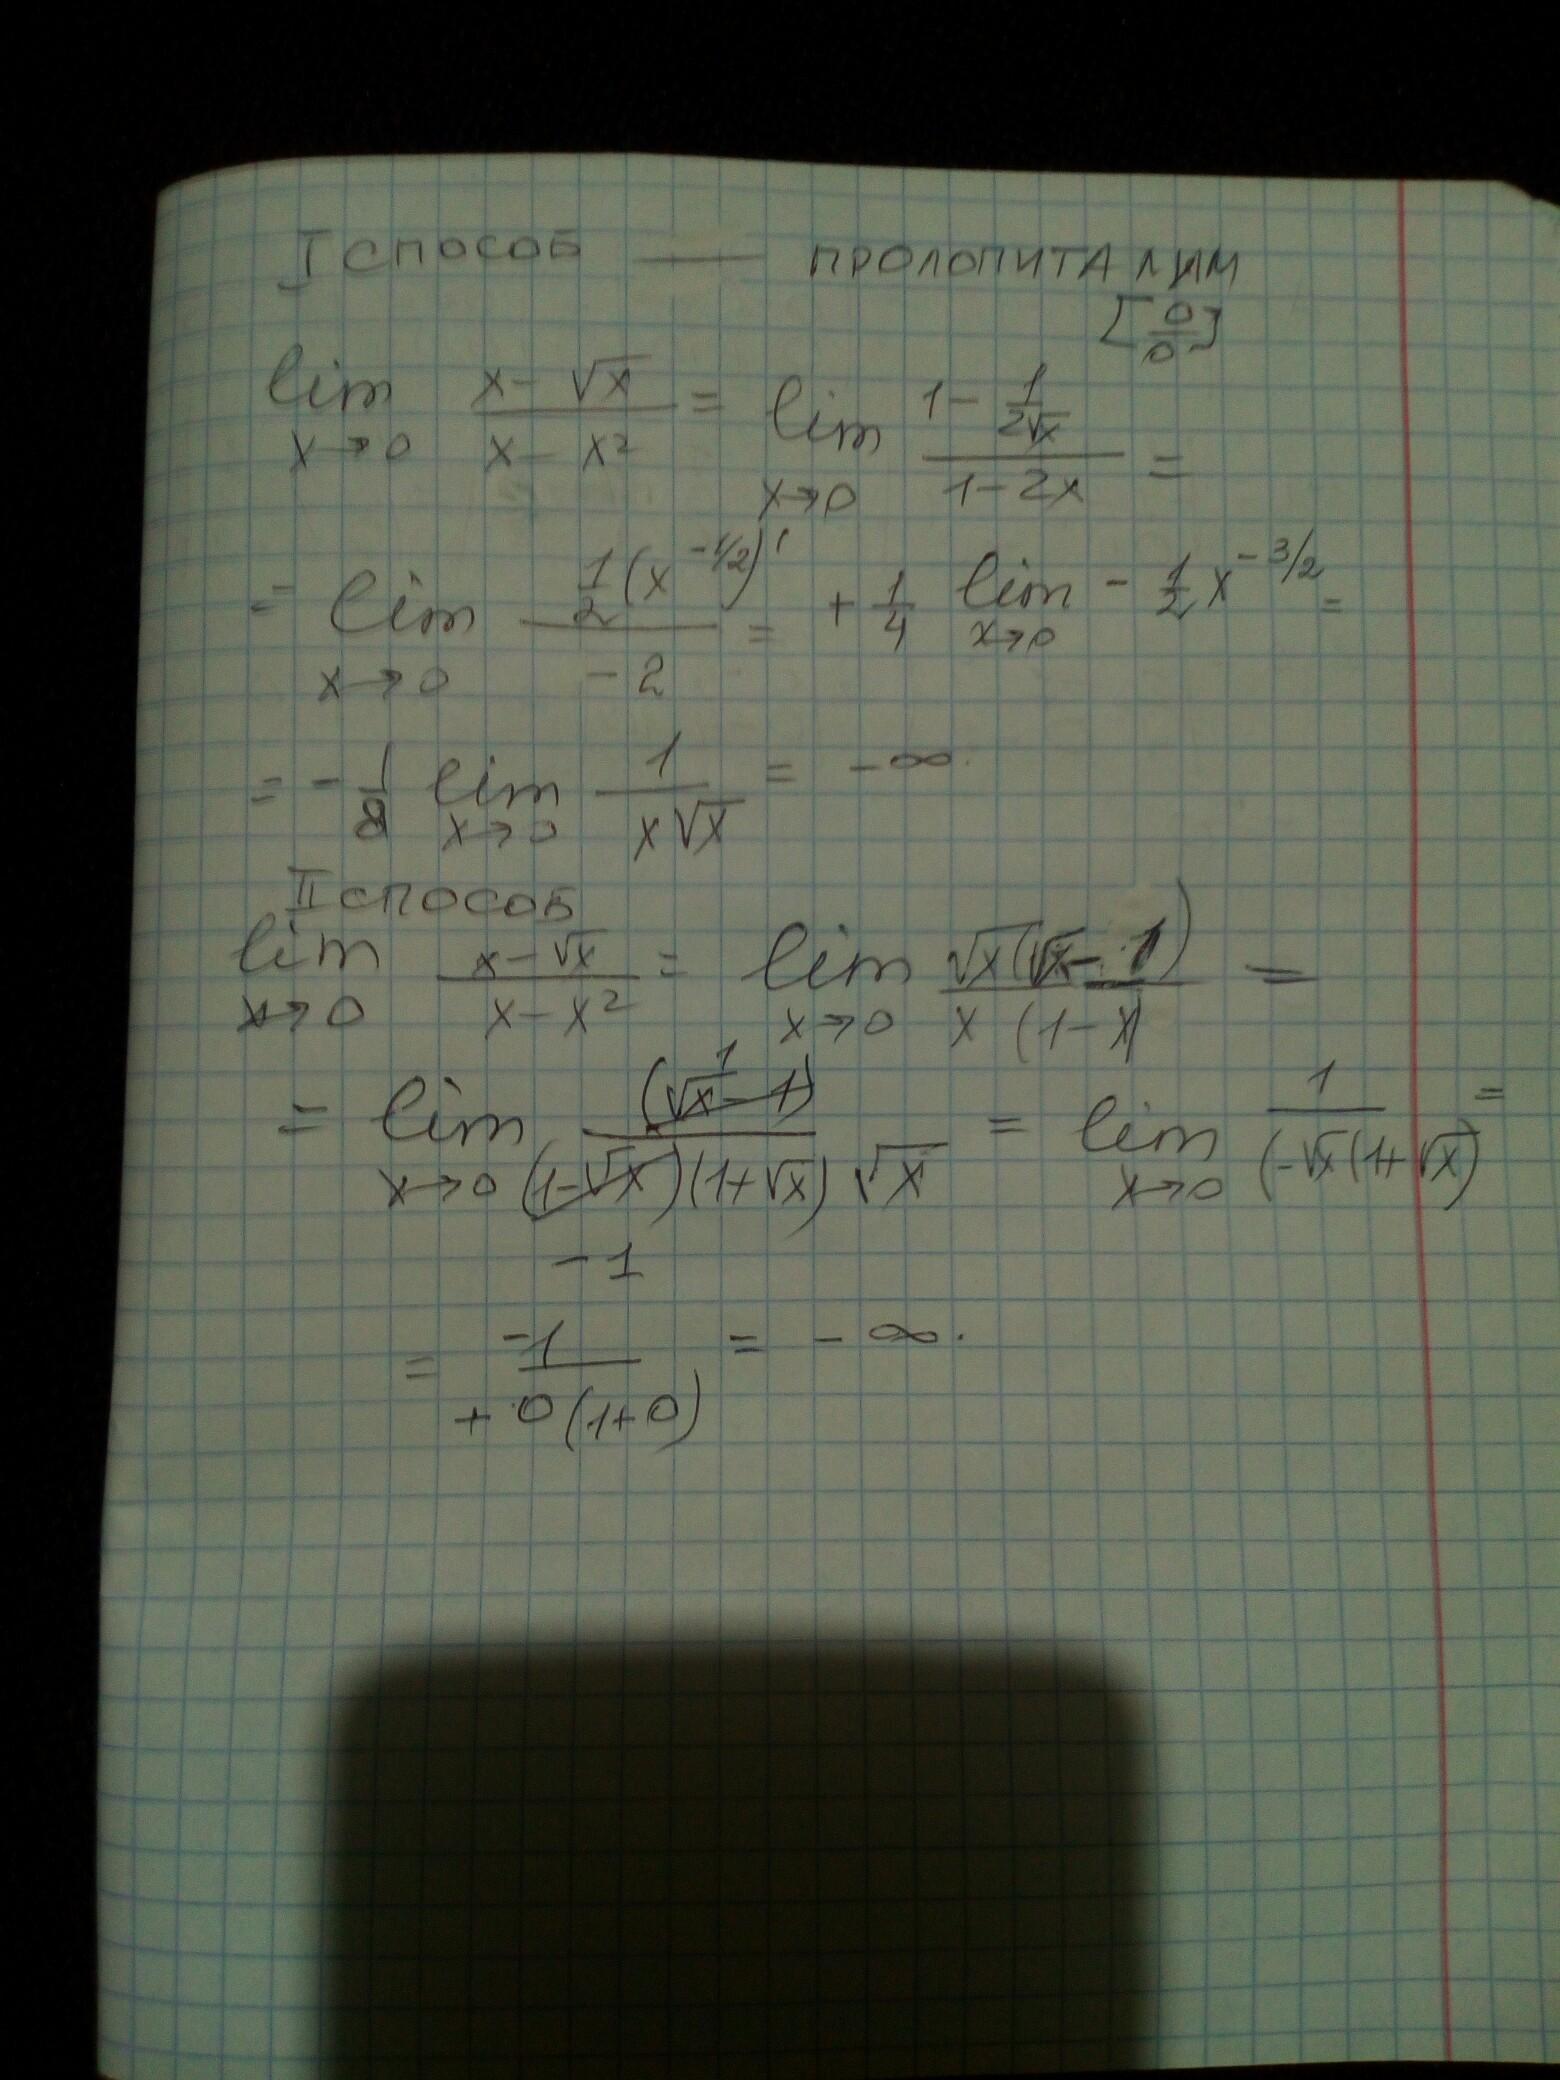 I СПОСОБ — ПРОЛОПИТАЛИМ
[0/0]
lim x→0 (x - √x)/(x - x²) = lim x→0 (1 - 1/(2√x))/(1 - 2x) =
= lim x→0 (1/2 (x^(-1/2))')/(-2) = + 1/4 lim x→0 - 1/2 x^(-3/2) =
= - 1/8 lim x→0 1/(x√x) = - ∞.
II СПОСОБ
lim x→0 (x - √x)/(x - x²) = lim x→0 √x(√x - 1)/(x (1 - x)) =
= lim x→0 (√x - 1)/((1 - √x)(1 + √x) √x) = lim x→0 1/(-√x(1 + √x)) =
1
-1
= -1/(+0(1+0)) = - ∞.